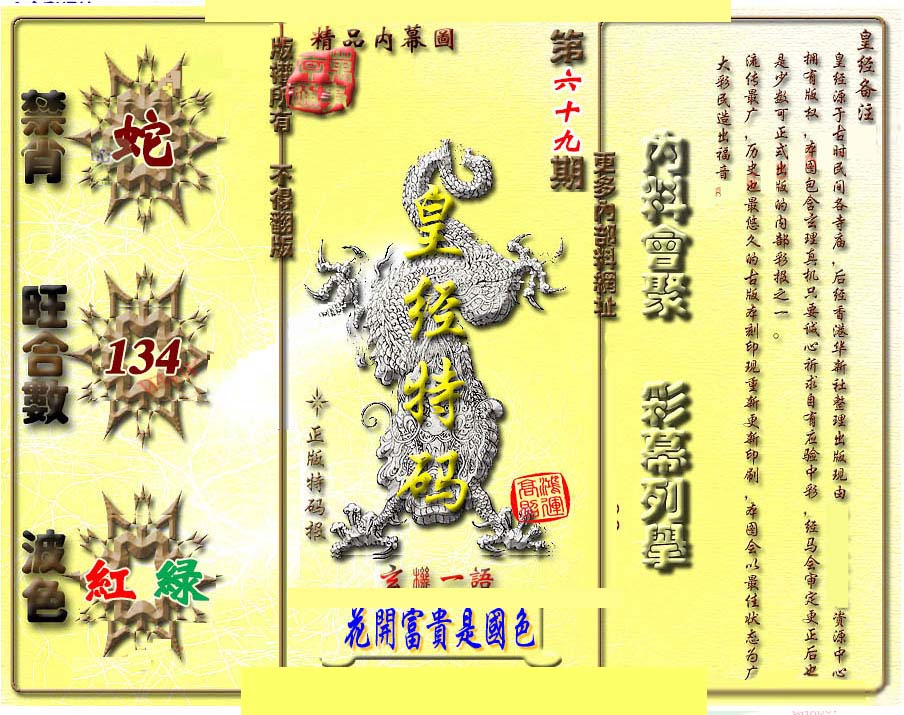 精品内幕圖
第六十九期
版權所有 不得翻版
更多內部料網址
皇经特码
正版特码报
鴻運高照
玄機一語
花開富貴是國色
禁肖
蛇
旺合數
134
波色
紅 綠
內料會聚
彩幕列舉
皇经备注
皇经源于古时民间各寺庙,后经香港华新社整理出版现由 资源中心
拥有版权,本图包含玄理真机只要诚心祈求自有应验中彩,经马会审定更正后也
是少数可正式出版的内部彩报之一。
流传最广,历史也最悠久的古版本刻印现重新更新印刷,本图会以最佳状态为广
大彩民造出福音